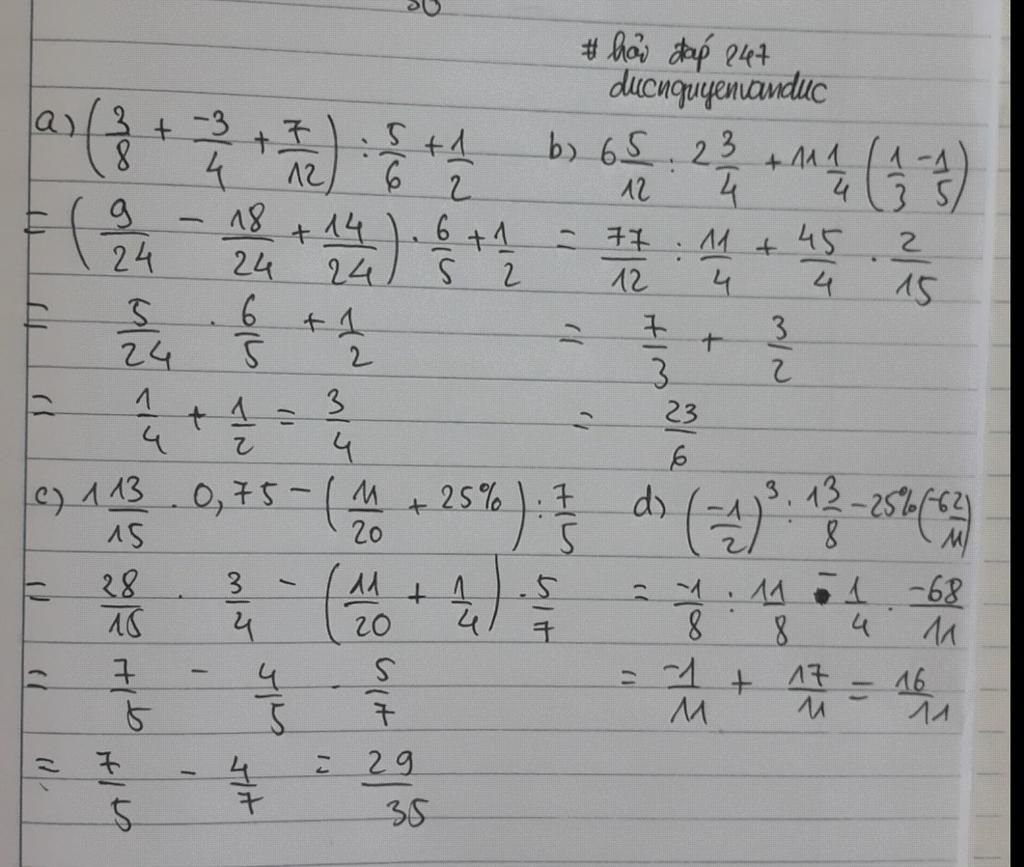 # hỏi đáp 247
ducnguyenvanduc
a) (3/8 + -3/4 + 7/12) : 5/6 + 1/2
= (9/24 - 18/24 + 14/24) . 6/5 + 1/2
= 5/24 . 6/5 + 1/2
= 1/4 + 1/2 = 3/4
b) 6 5/12 : 2 3/4 + 11 1/4 (1/3 - 1/5)
= 77/12 : 11/4 + 45/4 . 2/15
= 7/3 + 3/2
= 23/6
c) 1 13/15 . 0,75 - (11/20 + 25%) : 7/5
= 28/15 . 3/4 - (11/20 + 1/4) . 5/7
= 7/5 - 4/5 . 5/7
= 7/5 - 4/7 = 29/35
d) (-1/2)³ : 1 3/8 - 25% (-62/11)
= -1/8 : 11/8 - 1/4 . -68/11
= -1/11 + 17/11 = 16/11